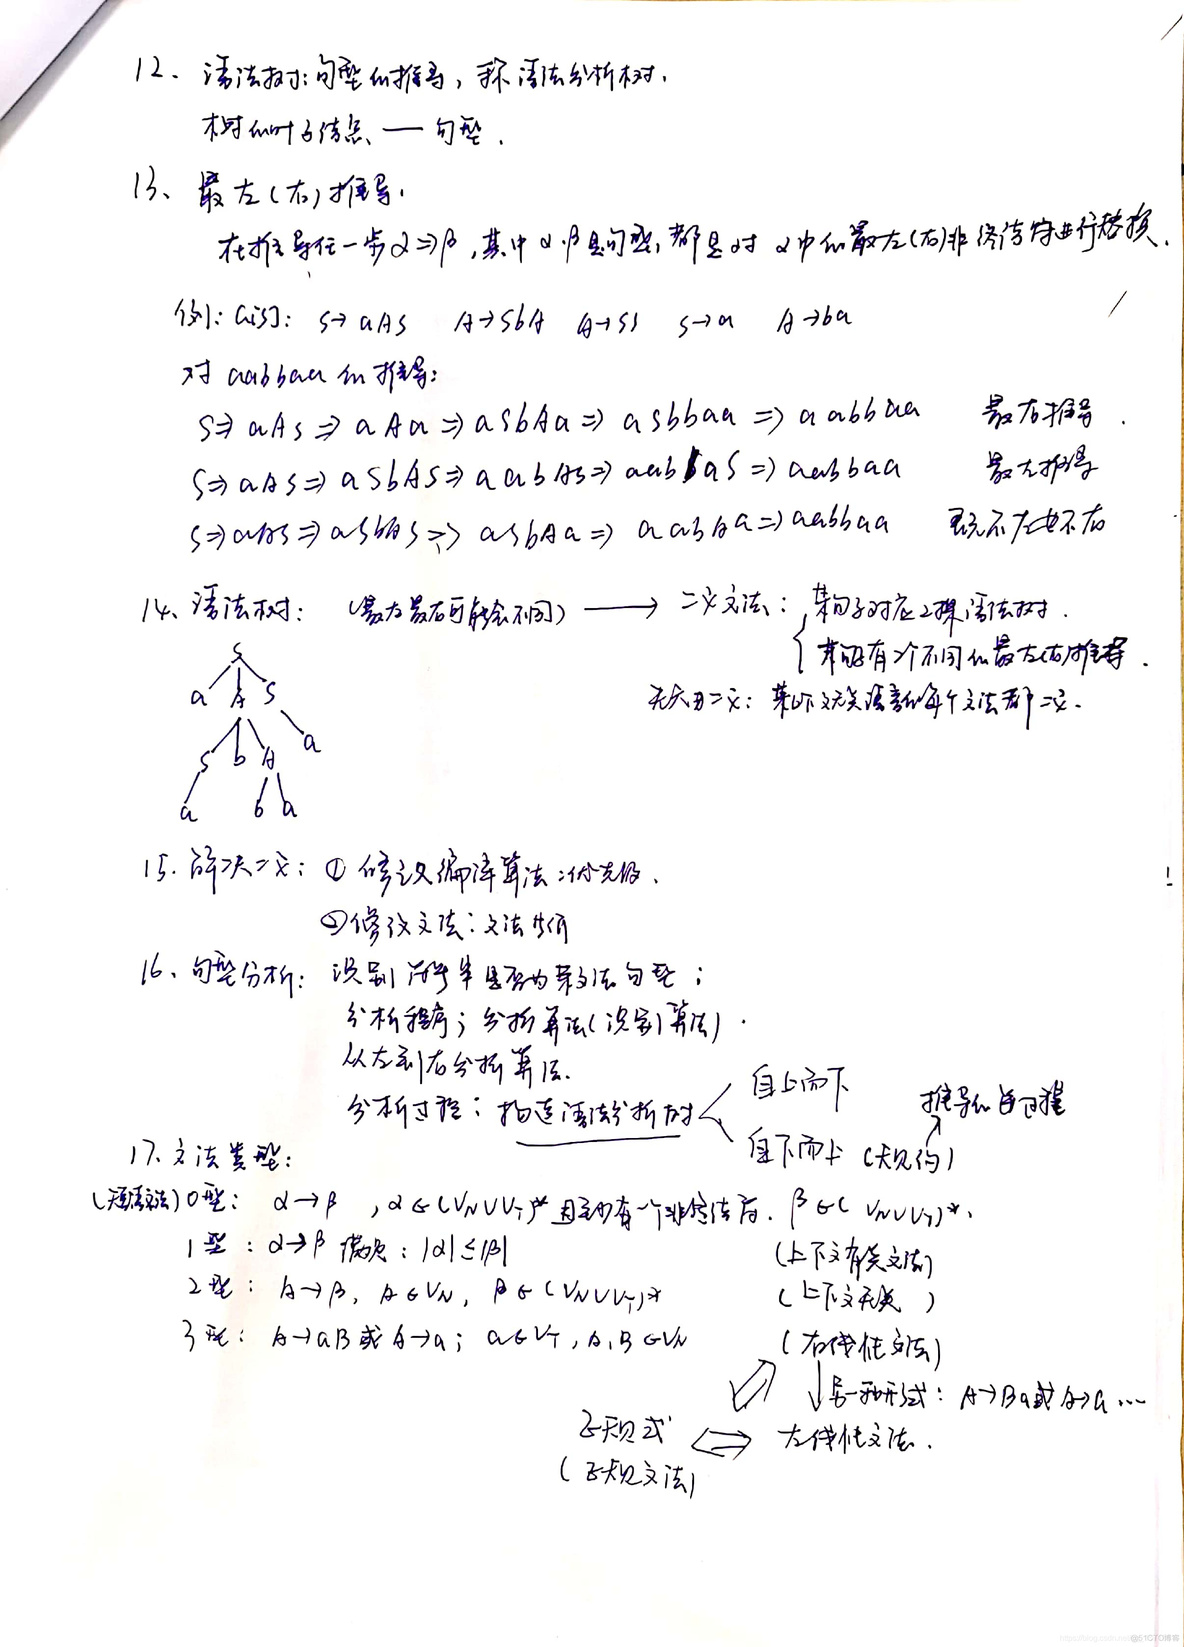 12、语法树:句型的推导,称语法分析树.
树的叶子结点 — 句型.
13、最左(右)推导.
在推导任一步α⇒β,其中α、β是句型,都是对α中的最左(右)非终结符进行替换.
例: G[S]: S→aAS A→SbA A→SS S→a A→ba
对aabbaa的推导:
S⇒aAS⇒aAa⇒aSbAa⇒aSbbaa⇒aabbaa 最右推导.
S⇒aAS⇒aSbAS⇒aabAS⇒aabbaS⇒aabbaa 最左推导
S⇒aAS⇒aSbAS⇒aSbAa⇒aabAa⇒aabbaa 既不左也不右
14、语法树: (最左最右可能会不同) → 二义文法: 某句子对应2棵语法树.
某句子有2个不同的最左(右)推导.
先天二义: 某上下文无关语言的每个文法都二义.
S
a A S
S b A a
a b a
15. 解决二义: ① 修改编译算法:优先级.
②修改文法:文法等价
16、句型分析: 识别符号串是否为某文法句型;
分析程序; 分析算法(识别算法).
从左到右分析算法.
分析过程: 构造语法分析树
自上而下
自下而上 (规约)
推导的逆过程
17.文法类型:
(短语文法)0型: α→β ,α∈(VN∪VT)*且至少有一个非终结符. β∈(VN∪VT)*.
1型: α→β 满足: |α|≤|β| (上下文有关文法)
2型: A→β, A∈VN, β∈(VN∪VT)* (上下文无关)
3型: A→aB或A→a; a∈VT, A,B∈VN (右线性文法)
↓另一种形式: A→Ba或A→a ...
正规式 ⇔ 左线性文法.
(正规文法)
@51CTO博客